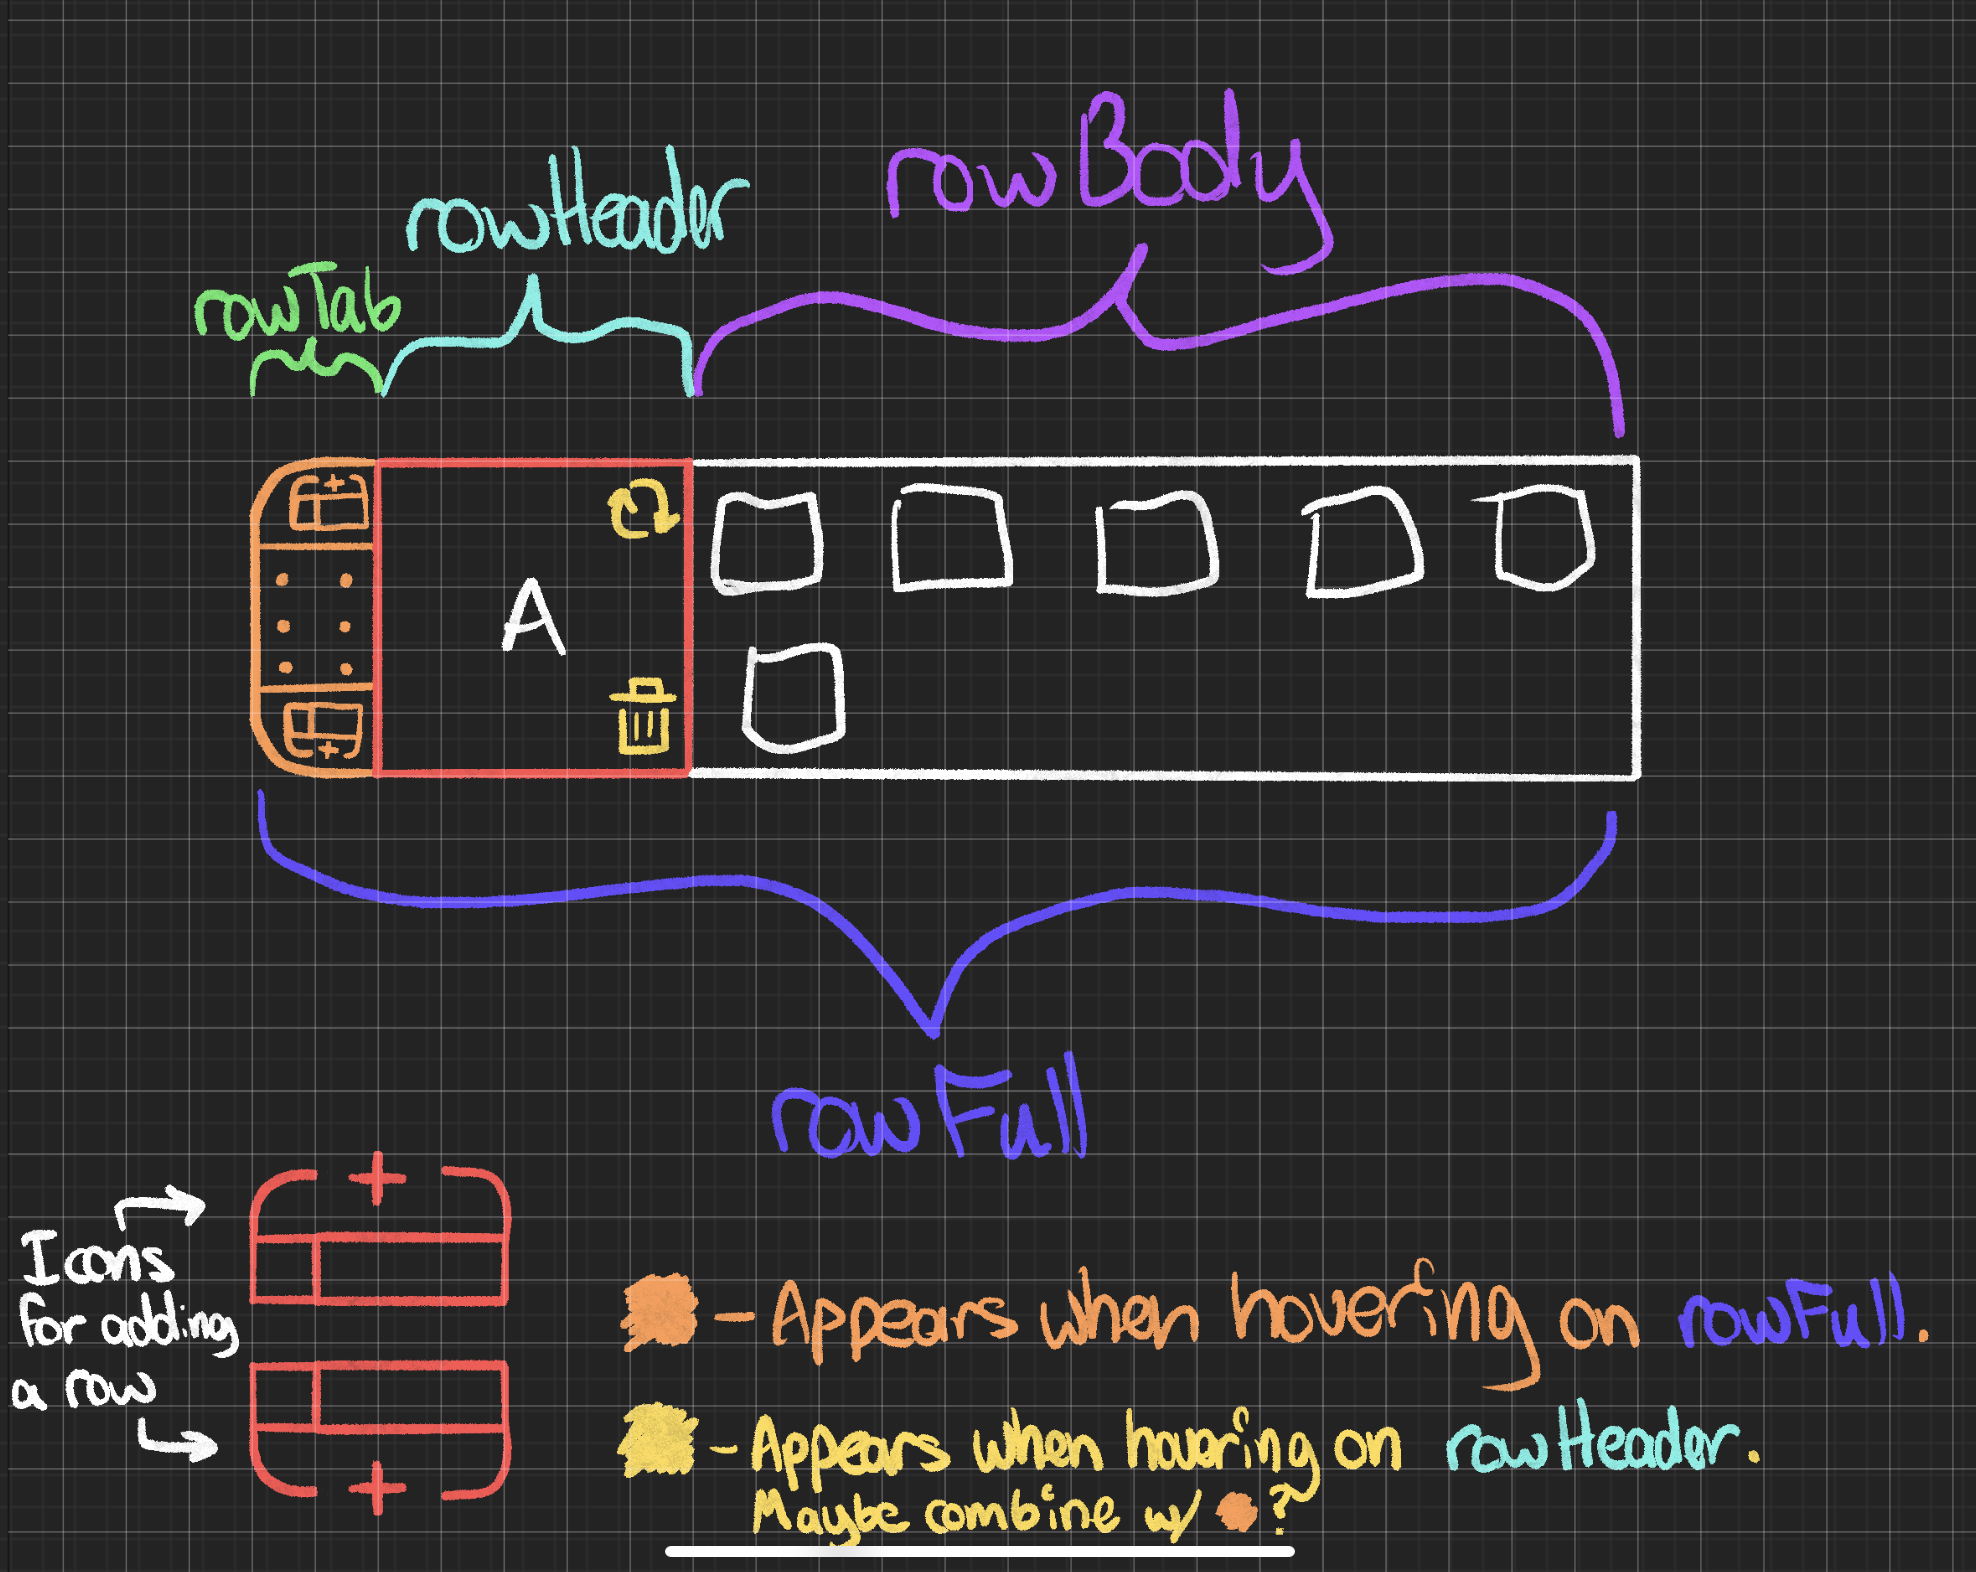 rowBody
rowHeader
rowTab
A
rowFull
Icons
for adding
a row
- Appears when hovering on rowFull.
- Appears when hovering on rowHeader.
Maybe combine w/ ?